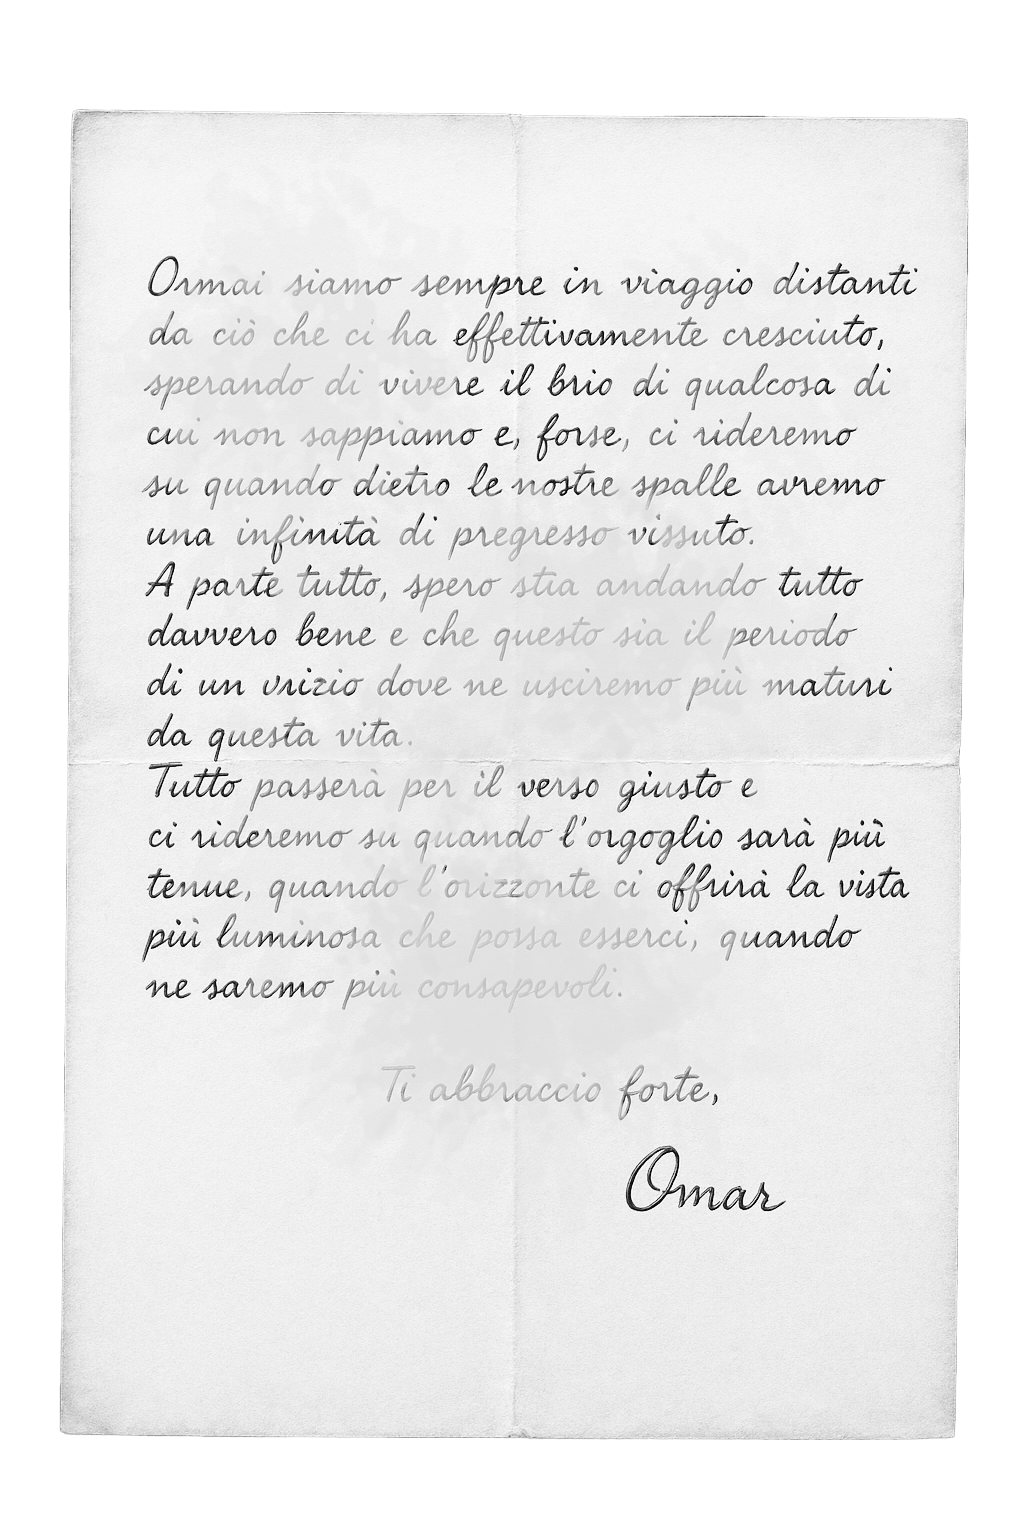 Ormai siamo sempre in viaggio distanti
da ciò che ci ha effettivamente cresciuto,
sperando di vivere il brio di qualcosa di
cui non sappiamo e, forse, ci rideremo
su quando dietro le nostre spalle avremo
una infinità di pregresso vissuto.
A parte tutto, spero stia andando tutto
davvero bene e che questo sia il periodo
di un vrizio dove ne usciremo più maturi
da questa vita.
Tutto passerà per il verso giusto e
ci rideremo su quando l'orgoglio sarà più
tenue, quando l'orizzonte ci offrirà la vista
più luminosa che possa esserci, quando
ne saremo più consapevoli.
Ti abbraccio forte,
Omar